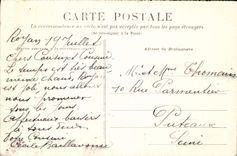 CARTE POSTALE
La correspondance au verso n'est pas acceptée par tous les pays étrangers
(Se renseigner à la Poste)
Adresse du Destinataire
Royan 19 Juillet
Chers Cousins Cousine
Le temps est très beau
chaud, Royan
est joli, nous allons
nous promener
tous les jours.
Affectueux baisers
à tous deux.
Votre Cousine
Mr et Mme Thomain
70 Rue Parmentier
Puteaux
Seine